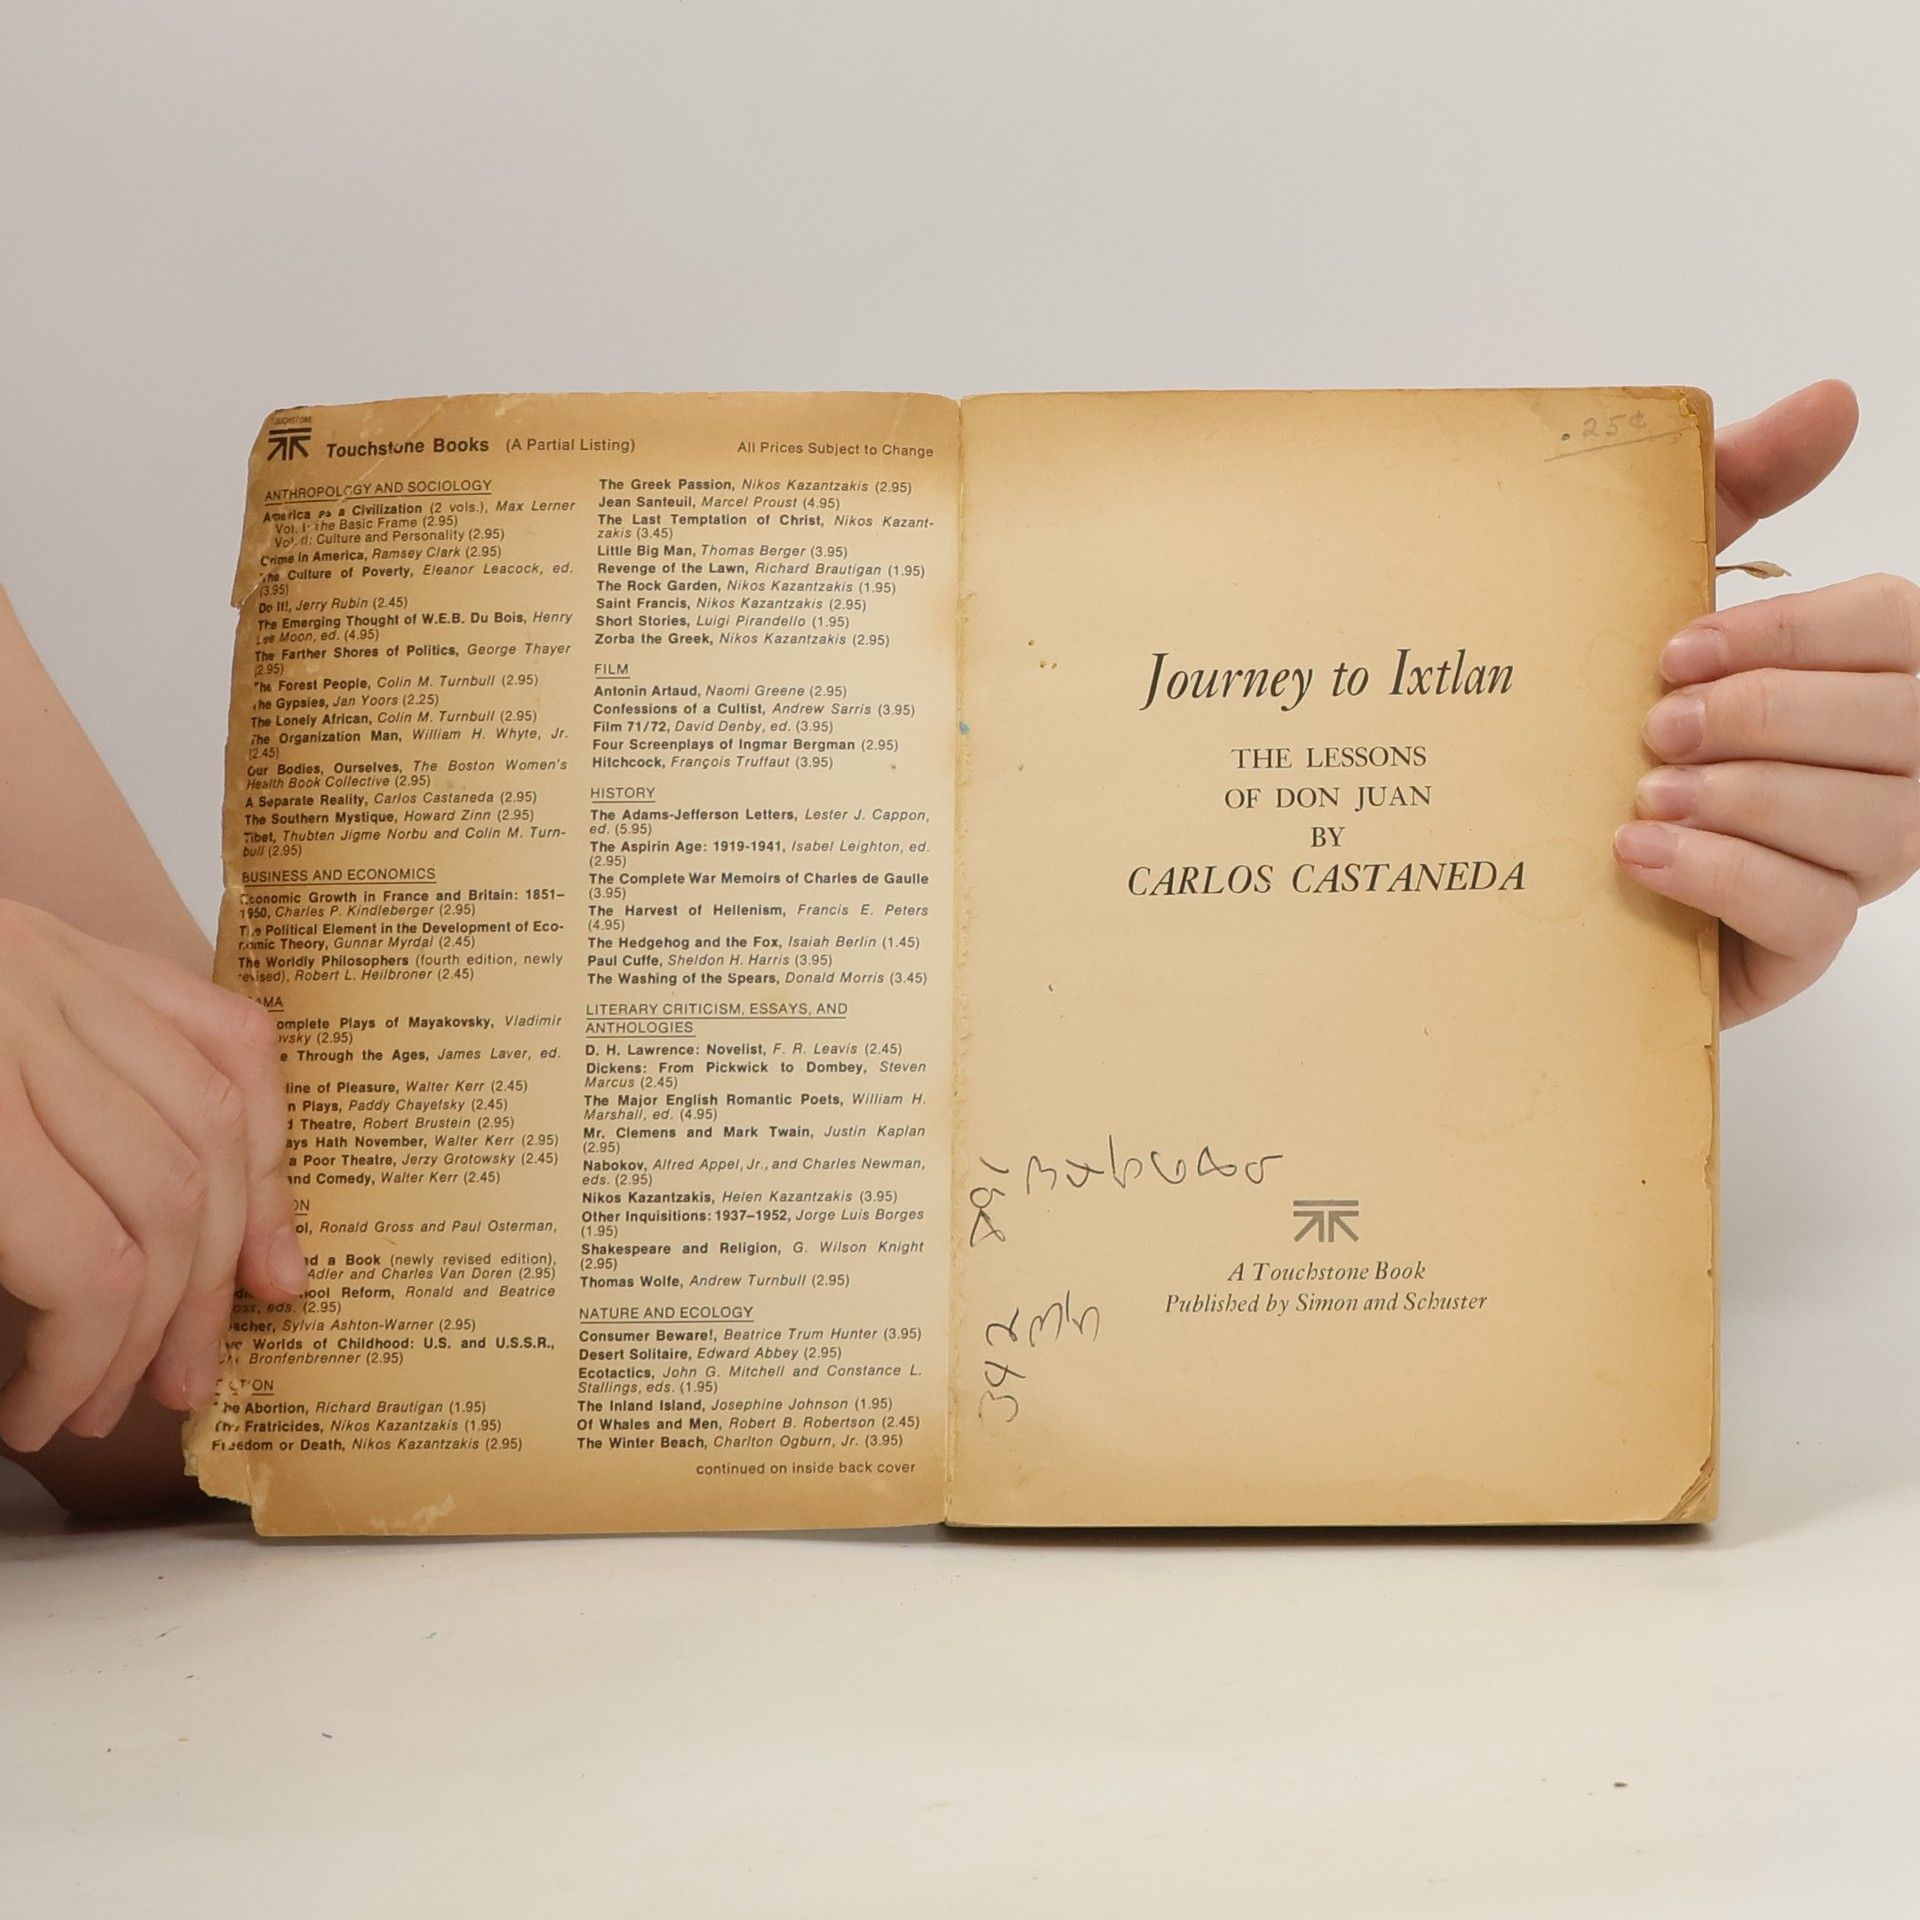 TOUCHSTONE
Touchstone Books (A Partial Listing) All Prices Subject to Change
ANTHROPOLOGY AND SOCIOLOGY
America as a Civilization (2 vols.), Max Lerner
Vol. I: the Basic Frame (2.95)
Vol. II: Culture and Personality (2.95)
Crime in America, Ramsey Clark (2.95)
The Culture of Poverty, Eleanor Leacock, ed.
(3.95)
Do It!, Jerry Rubin (2.45)
The Emerging Thought of W.E.B. Du Bois, Henry
Lee Moon, ed. (4.95)
The Farther Shores of Politics, George Thayer
(2.95)
The Forest People, Colin M. Turnbull (2.95)
The Gypsies, Jan Yoors (2.25)
The Lonely African, Colin M. Turnbull (2.95)
The Organization Man, William H. Whyte, Jr.
(2.45)
Our Bodies, Ourselves, The Boston Women's
Health Book Collective (2.95)
A Separate Reality, Carlos Castaneda (2.95)
The Southern Mystique, Howard Zinn (2.95)
Tibet, Thubten Jigme Norbu and Colin M. Turn-
bull (2.95)
BUSINESS AND ECONOMICS
Economic Growth in France and Britain: 1851–
1950, Charles P. Kindleberger (2.95)
The Political Element in the Development of Eco-
nomic Theory, Gunnar Myrdal (2.45)
The Worldly Philosophers (fourth edition, newly
revised), Robert L. Heilbroner (2.45)
AMA
omplete Plays of Mayakovsky, Vladimir
ovsky (2.95)
e Through the Ages, James Laver, ed.
line of Pleasure, Walter Kerr (2.45)
n Plays, Paddy Chayefsky (2.45)
d Theatre, Robert Brustein (2.95)
ays Hath November, Walter Kerr (2.95)
a Poor Theatre, Jerzy Grotowsky (2.45)
and Comedy, Walter Kerr (2.45)
ON
ol, Ronald Gross and Paul Osterman,
nd a Book (newly revised edition),
Adler and Charles Van Doren (2.95)
ool Reform, Ronald and Beatrice
oss, eds. (2.95)
eacher, Sylvia Ashton-Warner (2.95)
Worlds of Childhood: U.S. and U.S.S.R.,
Bronfenbrenner (2.95)
FICTION
The Abortion, Richard Brautigan (1.95)
The Fratricides, Nikos Kazantzakis (1.95)
Freedom or Death, Nikos Kazantzakis (2.95)
The Greek Passion, Nikos Kazantzakis (2.95)
Jean Santeuil, Marcel Proust (4.95)
The Last Temptation of Christ, Nikos Kazant-
zakis (3.45)
Little Big Man, Thomas Berger (3.95)
Revenge of the Lawn, Richard Brautigan (1.95)
The Rock Garden, Nikos Kazantzakis (1.95)
Saint Francis, Nikos Kazantzakis (2.95)
Short Stories, Luigi Pirandello (1.95)
Zorba the Greek, Nikos Kazantzakis (2.95)
FILM
Antonin Artaud, Naomi Greene (2.95)
Confessions of a Cultist, Andrew Sarris (3.95)
Film 71/72, David Denby, ed. (3.95)
Four Screenplays of Ingmar Bergman (2.95)
Hitchcock, François Truffaut (3.95)
HISTORY
The Adams-Jefferson Letters, Lester J. Cappon,
ed. (5.95)
The Aspirin Age: 1919-1941, Isabel Leighton, ed.
(2.95)
The Complete War Memoirs of Charles de Gaulle
(3.95)
The Harvest of Hellenism, Francis E. Peters
(4.95)
The Hedgehog and the Fox, Isaiah Berlin (1.45)
Paul Cuffe, Sheldon H. Harris (3.95)
The Washing of the Spears, Donald Morris (3.45)
LITERARY CRITICISM, ESSAYS, AND
ANTHOLOGIES
D. H. Lawrence: Novelist, F. R. Leavis (2.45)
Dickens: From Pickwick to Dombey, Steven
Marcus (2.45)
The Major English Romantic Poets, William H.
Marshall, ed. (4.95)
Mr. Clemens and Mark Twain, Justin Kaplan
(2.95)
Nabokov, Alfred Appel, Jr., and Charles Newman,
eds. (2.95)
Nikos Kazantzakis, Helen Kazantzakis (3.95)
Other Inquisitions: 1937–1952, Jorge Luis Borges
(1.95)
Shakespeare and Religion, G. Wilson Knight
(2.95)
Thomas Wolfe, Andrew Turnbull (2.95)
NATURE AND ECOLOGY
Consumer Beware!, Beatrice Trum Hunter (3.95)
Desert Solitaire, Edward Abbey (2.95)
Ecotactics, John G. Mitchell and Constance L.
Stallings, eds. (1.95)
The Inland Island, Josephine Johnson (1.95)
Of Whales and Men, Robert B. Robertson (2.45)
The Winter Beach, Charlton Ogburn, Jr. (3.95)
continued on inside back cover
.25¢
Journey to Ixtlan
THE LESSONS
OF DON JUAN
BY
CARLOS CASTANEDA
A Touchstone Book
Published by Simon and Schuster